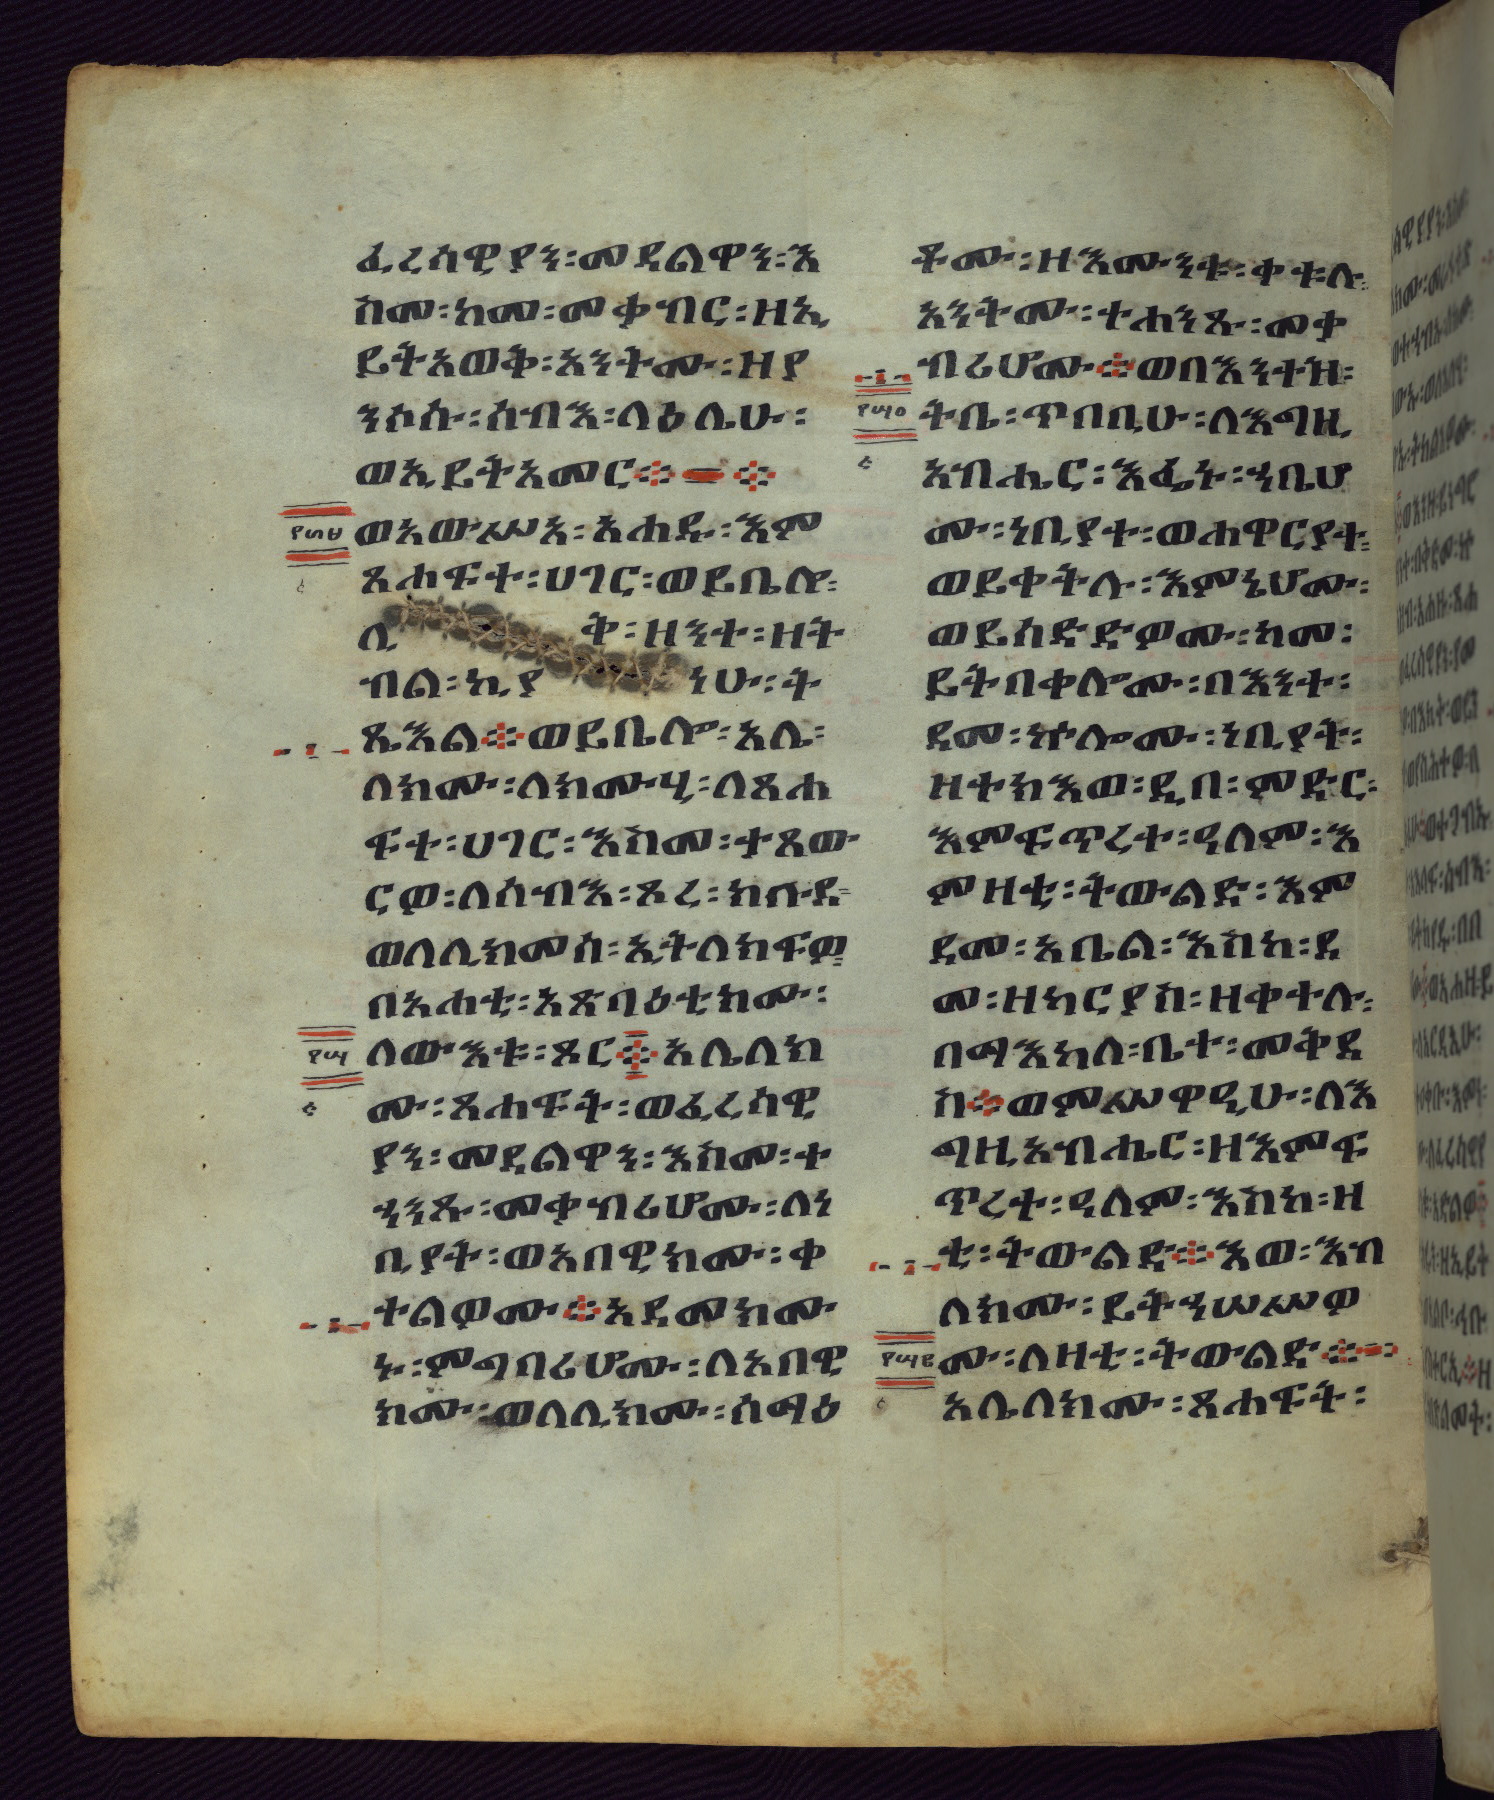 ፈረሰዊያን፡መደልዋን፡እ
ስመ፡ከመ፡መቃብር፡ዘኢ
ይትአወቅ፡አንትሙ፡ዘያ
ንሶሱ፡ሰብእ፡ላዕሌሁ፡
ወኢይትአመር።
ወአውሥአ፡አሐዱ፡እም
ጸሐፍተ፡ሀገር፡ወይቤሎ፡
ሊ ቅ፡ዘንተ፡ዘት
ብል፡ኪያ ነሁ፡ት
ጼእል።ወይቤሎ፡አሌ፡
ለክሙ፡ለክሙሂ፡ለጸሐ
ፍተ፡ሀገር፡እስመ፡ተጸው
ርዎ፡ለሰብእ፡ጾረ፡ክቡደ፡
ወለሊክመሰ፡ኢትለክፍዎ
በአሐቲ፡አጽባዕቲክሙ፡
ለውእቱ፡ጾር።አሌለክ
ሙ፡ጸሐፍት፡ወፈረሰዊ
ያን፡መደልዋን፡እስመ፡ተ
ሓንጹ፡መቃብሪሆሙ፡ለነ
ቢያት፡ወአበዊክሙ፡ቀ
ተልዎሙ።አደመክሙ
ኑ፡ምግባሪሆሙ፡ለአበዊ
ክሙ፡ወለሊክሙ፡ሰማዕ
ቶሙ፡ዘእሙንቱ፡ቀተሉ፡
አንትሙ፡ተሐንጹ፡መቃ
ብሪሆሙ።ወበእንተዝ፡
፲፱፬
ትቤ፡ጥበቢሁ፡ለእግዚ
አብሔር፡እፌኑ፡ኀቤሆ
ሙ፡ነቢያተ፡ወሐዋርያተ፡
ወይቀትሉ፡እምኔሆሙ፡
ወይሰድድዎሙ፡ከመ፡
ይትበቀሎሙ፡በእንተ፡
ደመ፡ኵሎሙ፡ነቢያት፡
ዘተክእወ፡ዲበ፡ምድር፡
እምፍጥረተ፡ዓለም፡እ
ምዛቲ፡ትውልድ፡እም
ደመ፡አቤል፡እስከ፡ደ
መ፡ዘካርያስ፡ዘቀተሉ፡
በማእከለ፡ቤተ፡መቅደ
ስ።ወምሥዋዒሁ፡ለእ
ግዚአብሔር፡ዘእምፍ
ጥረተ፡ዓለም፡እስከ፡ዛ
ቲ፡ትውልድ።እወ፡እብ
ለክሙ፡ይትኀሠሥዎ
ሙ፡ለዛቲ፡ትውልድ።
አሌለክሙ፡ጸሐፍት፡